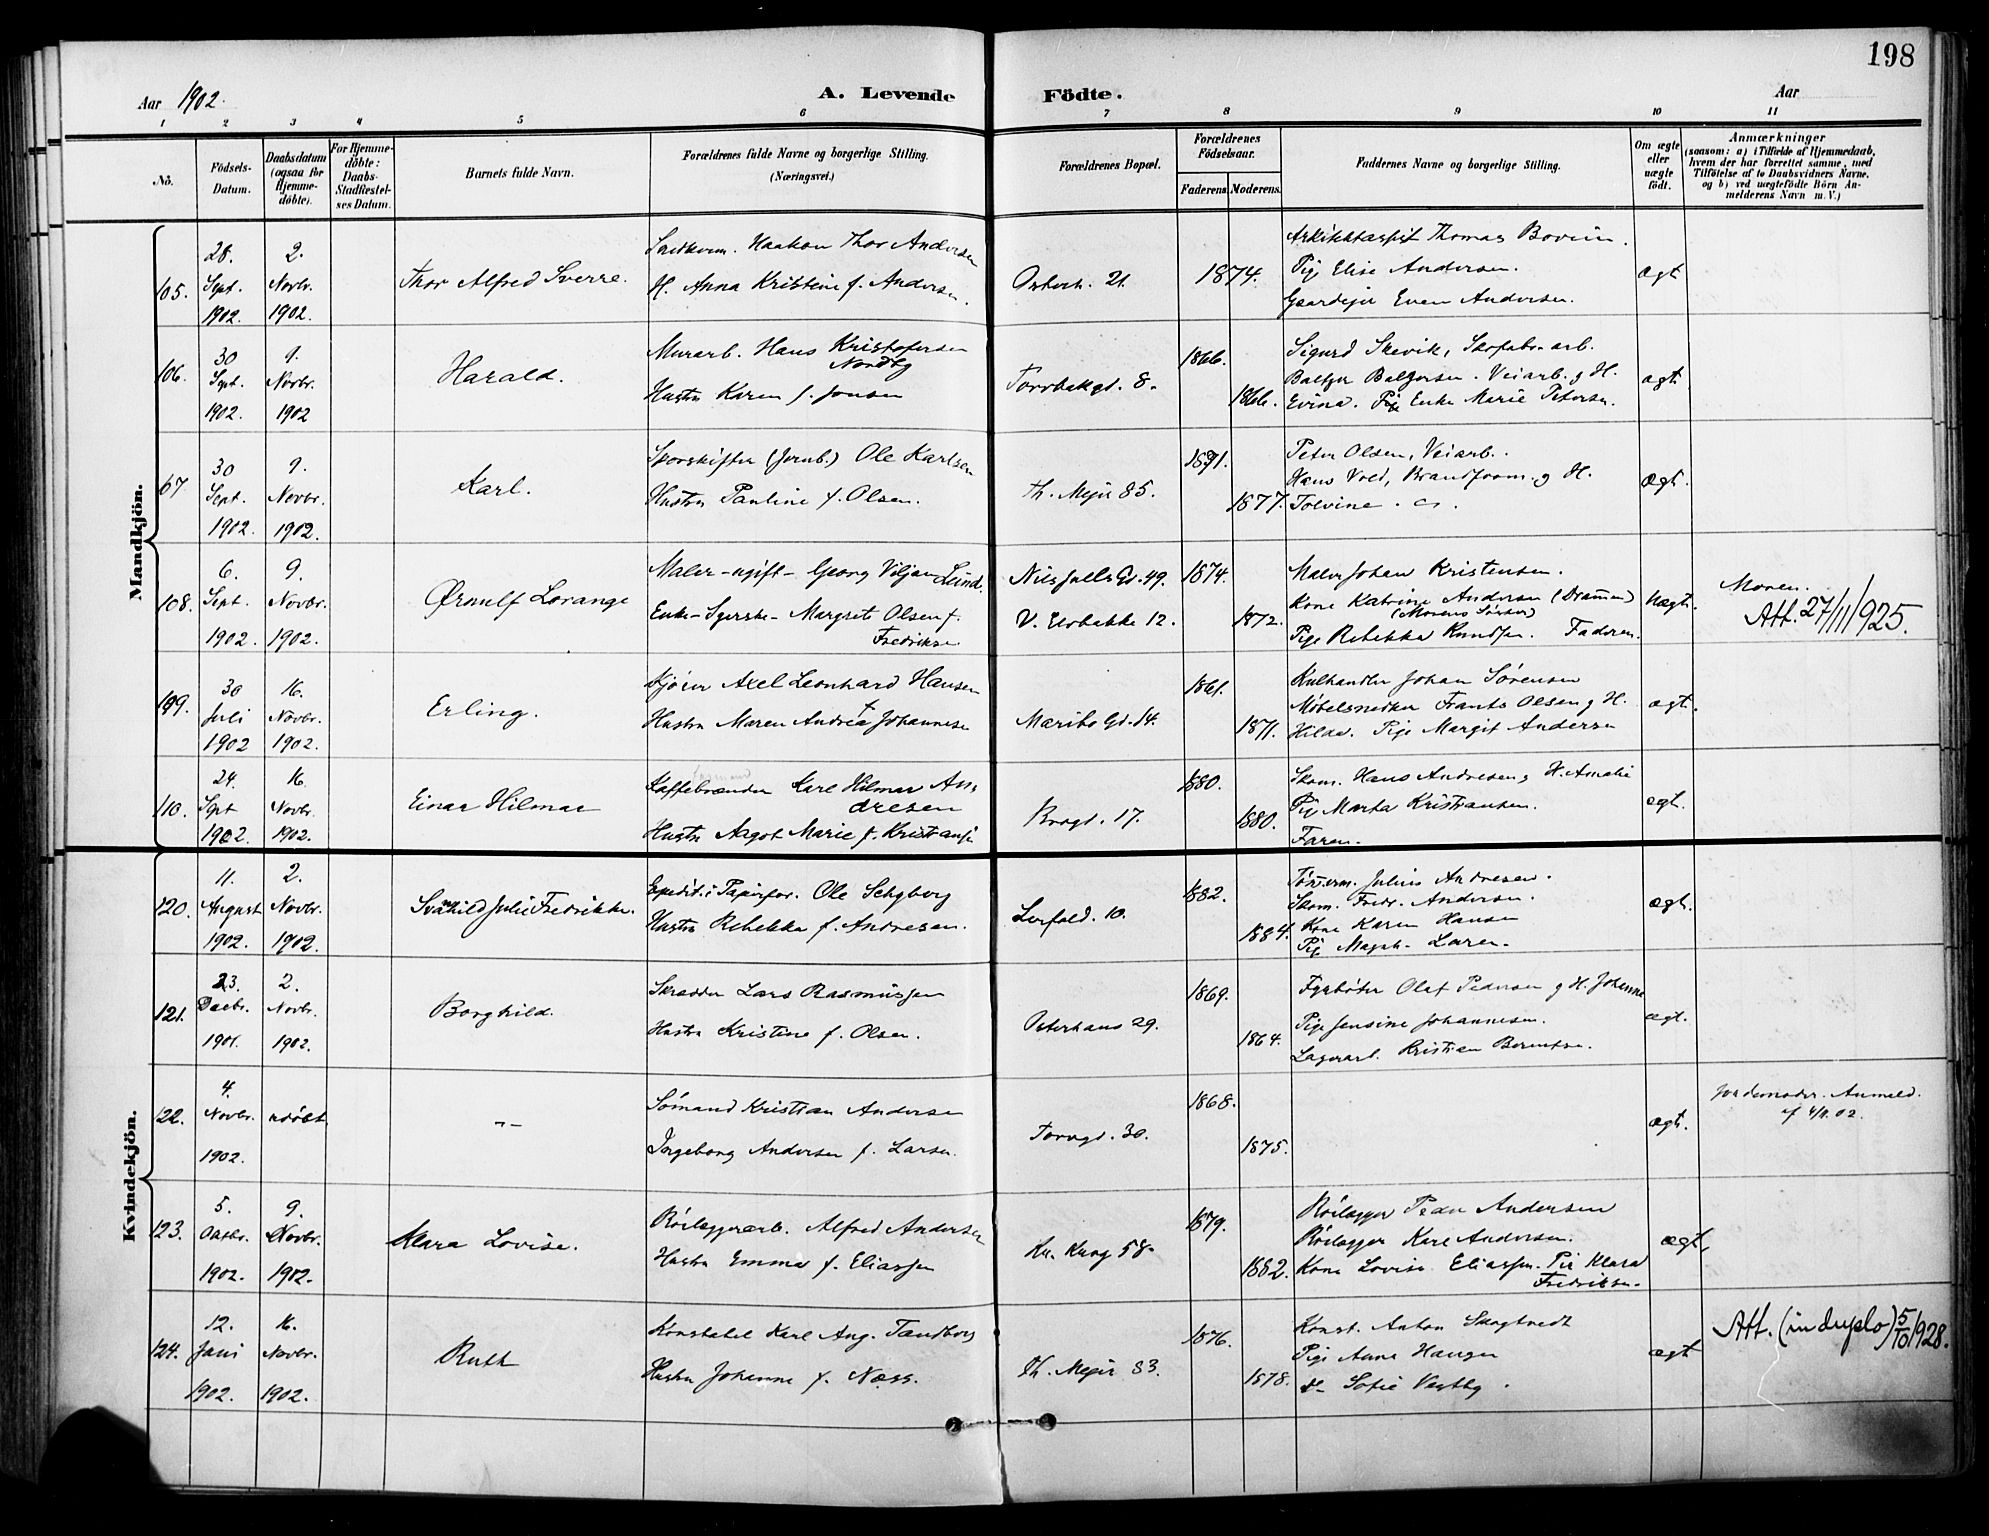 198
Aar 1902.
A. Levende Födte.
Aar
1 2 3 4 5 6 7 8 9 10 11
Nô.
Födsels-Datum.
Daabsdatum (ogsaa for Hjemme-döbte).
For Hjemme-döbte: Daabs-Stadfæstel-ses Datum.
Barnets fulde Navn.
Forældrenes fulde Navne og borgerlige Stilling. (Næringsvei.)
Forældrenes Bopæl.
Forældrenes Födselsaar.
Faderens. Moderens.
Faddernes Navne og borgerlige Stilling.
Om ægte eller uægte födt.
Anmærkninger
(saasom: a) i Tilfælde af Hjemmedaab,
hvem der har forrettet samme, med
Tilföielse af to Daabsvidners Navne.
og b) ved uægtefödte Börn An-
melderens Navn m. V.)
Mandkjön.
105.
28. Sept. 1902.
2. Novbr. 1902.
Thor Alfred Sverre.
Haakon Thor Andersen
H. Anna Kristine f. Andersen.
Osterh. 21.
1874.
Thomas Bovim.
Pig Elise Andersen.
Gaardejer Even Andersen.
ægt
106.
30 Sept. 1902.
9. Novbr. 1902
Harald.
Murarb. Hans Kristofersen
Nordby
Hustru Karen f. Jonsen
Torvbakgd. 8.
1866.
1866.
Sigurd Skevik, Skofabr. arb.
Veiarb. g H.
Evina. Pige Enke Marie Petersen.
ægt.
107
30 Sept. 1902.
9. Novbr. 1902.
Karl.
Sporskifter (Jernb.) Ole Karlsen
Hustru Pauline f. Olsen.
Th. Mejer 85.
1871.
1877.
Peter Olsen, Veiarb.
Hans Vold, Brandform. g H.
Tolvine.
ægt.
108.
6. Sept. 1902.
9. Novbr. 1902.
Ørnulf Lorange
Maler - ugift - Georg Viljam Lund.
Enke - Syerske - Margrete Olsen f.
Fredriksen
Nils Juels Gd. 49.
V. Elvbakke 12.
1874.
1872.
Maler Johan Kristensen.
Kone Katrine Andersen (Drammen)
(Morens Søster)
Pige Rebekka Knudsen. Faderen.
Uægt.
Moren.
Att. 27/11/925.
109.
30 Juli 1902
16. Novbr. 1902.
Erling.
Kjører Axel Leonhard Hansen
Hustru Maren Andrea f. Johannesen
Maribo Gd. 14.
1861.
1871.
Kulhandler Johan Sørensen
Møbelsnedker Frants Olsen g H.
Hilda. Pige Margit Andersen
ægt.
110.
24. Sept 1902.
16 Novbr. 1902.
Einar Hilmar
Kaffebrænder Karl Hilmar An-
dresen
Hustru Aagot Marie f. Kristiansen
Brogd. 17.
1880.
1880.
Skom. Hans Andresen g H. Amalie
Pig Marta Kristiansen.
Faren.
ægt.
Kvindekjön.
120.
11. August 1902.
2. Novbr. 1902.
Svanhild Julie Fredrikke.
Expedit. i Papirfor. Ole Schyberg
Hustru Rebekka f. Andresen.
Lerfald. 10.
1882.
1884.
Tömerm. Julius Andresen.
Skom. Fredr. Andersen.
Kone Karen Hansen
Pig Magnh. Larsen.
ægt.
121.
23. Decbr. 1901.
2. Novbr. 1902.
Borghild.
Skrædder Lars Rasmussen
Hustru Kristine f. Olsen.
Osterhaus 29.
1869.
1864.
Fyrbøter Olaf Pedersen g H. Johanne
Pige Jensine Johannesen.
Lagerarb. Kristian Berentsen.
ægt.
122.
4. Novbr. 1902.
udöbt
-"-
Sömand Kristian Andersen
Ingeborg Andersen f. Larsen.
Torvgd. 30.
1868.
1875.
ægt.
Jordemoder. Anmeld.
af 4/11. 02.
123.
5. Octbr. 1902.
9. Novbr. 1902.
Klara Lovise.
Rörlæggerarb. Alfred Andersen
Hustru Emma f. Eliassen
Kr. Krog 58.
1879.
1882.
Rörlægger Peder Andersen
Rörlægger Karl Andersen.
Kone Lovise Eliassen. Pie Klara
Fredriksen.
ægt.
124.
12. Juni 1902.
16. Novbr. 1902.
Ruth
Konstabel Karl Aug. Tandberg
Hustru Johanne f. Næss.
Th. Mejer 83.
1876.
1878.
Konst. Anton
Pige Anna Haugen
do Sofie Vestby.
ægt
Att. (in duplo) 5/10 1928.